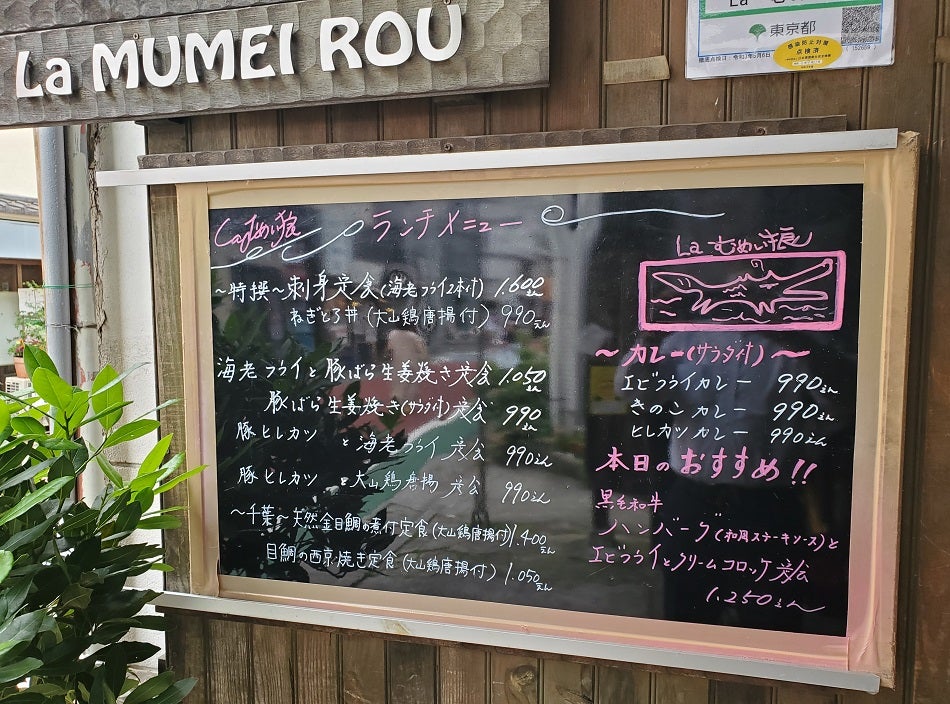 La MUMEI ROU
La む
東京都
感染防止対策
点検済
Caféむめい狼
ランチメニュー
～特撰～刺身定食(海老フライ2本付) 1.600えん
ねぎとろ丼(大山鶏唐揚付) 990えん
海老フライと豚ばら生姜焼き定食 1.050えん
豚ばら生姜焼き(サラダ付)定食 990えん
豚ヒレカツ と海老フライ 定食 990えん
豚ヒレカツ と大山鶏唐揚 定食 990えん
～千葉～天然金目鯛の煮付定食(大山鶏唐揚付) 1.400えん
目鯛の西京焼き定食(大山鶏唐揚付) 1.050えん
La むめい狼
～カレー(サラダ付)～
エビフライカレー 990えん
きのこカレー 990えん
ヒレカツカレー 990えん
本日のおすすめ!!
黒毛和牛
ハンバーグ(和風ステーキソース)と
エビフライとクリームコロッケ定食
1.250えん